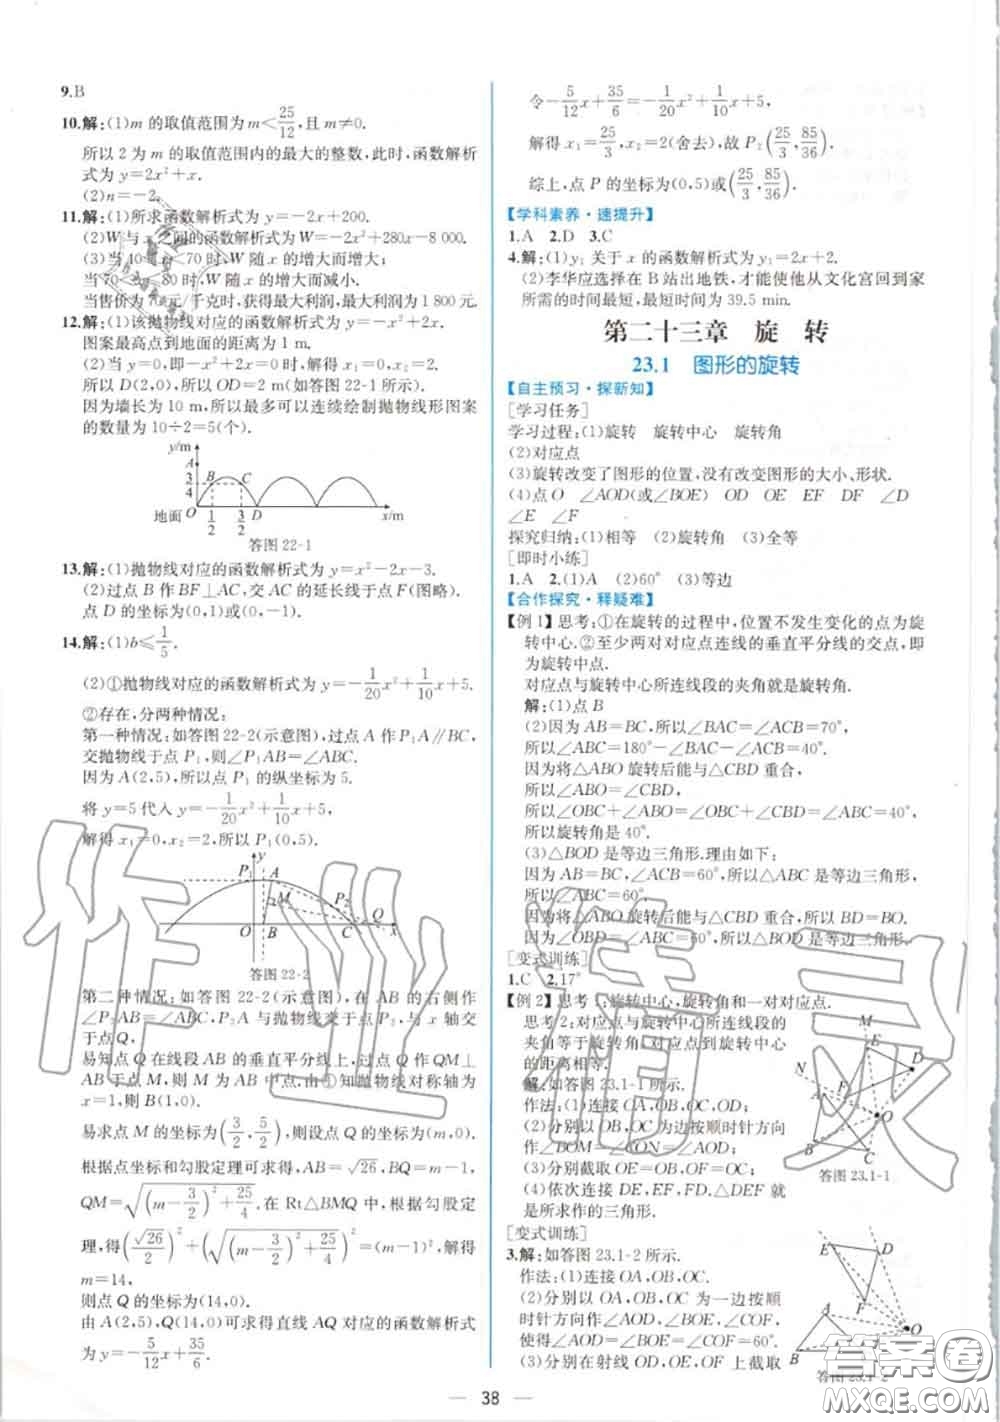 9.B
10.解:(1)m 的取值范围为 m<25/12,且 m≠0.
所以 2 为 m 的取值范围内的最大的整数,此时,函数解析
式为 y=2x²+x.
(2)n=-2.
11.解:(1)所求函数解析式为 y=-2x+200.
(2)W 与 x 之间的函数解析式为 W=-2x²+280x-8 000.
(3)当 40≤x<70 时,W 随 x 的增大而增大;
当 70≤x≤80 时,W 随 x 的增大而减小.
当售价为 70 元/千克时,获得最大利润,最大利润为 1 800 元.
12.解:(1)该抛物线对应的函数解析式为 y=-x²+2x.
图案最高点到地面的距离为 1 m.
(2)当 y=0 时,即-x²+2x=0,解得 x₁=0,x₂=2.
所以 D(2,0),所以 OD=2 m(如答图 22-1 所示).
因为墙长为 10 m,所以最多可以连续绘制抛物线形图案
的数量为 10÷2=5(个).
y/m
A
3/4
B
C
地面
O
1/2
3/2
D
x/m
答图 22-1
13.解:(1)抛物线对应的函数解析式为 y=x²-2x-3.
(2)过点 B 作 BF⊥AC,交 AC 的延长线于点 F(图略).
点 D 的坐标为(0,1)或(0,-1).
14.解:(1)b≤1/5.
(2)①抛物线对应的函数解析式为 y=-1/20x²+1/10x+5.
②存在,分两种情况:
第一种情况:如答图 22-2(示意图),过点 A 作 P₁A∥BC,
交抛物线于点 P₁,则∠P₁AB=∠ABC.
因为 A(2,5),所以点 P₁ 的纵坐标为 5.
将 y=5 代入 y=-1/20x²+1/10x+5,
解得 x₁=0,x₂=2,所以 P₁(0,5).
y
P₁
A
M
P₂
O
B
C
Q
x
答图 22-2
第二种情况:如答图 22-2(示意图),在 AB 的右侧作
∠P₂AB=∠ABC,P₂A 与抛物线交于点 P₂,与 x 轴交
于点 Q,
易知点 Q 在线段 AB 的垂直平分线上,过点 Q 作 QM⊥
AB 于点 M,则 M 为 AB 中点.由①知抛物线对称轴为
x=1,则 B(1,0).
易求点 M 的坐标为(3/2,5/2),则设点 Q 的坐标为(m,0).
根据点坐标和勾股定理可求得:AB=√26,BQ=m-1.
QM=√((m-3/2)²+25/4).在 Rt△BMQ 中,根据勾股定
理,得(√26/2)²+(√((m-3/2)²+25/4))²=(m-1)²,解得
m=14,
则点 Q 的坐标为(14,0).
由 A(2,5),Q(14,0)可求得直线 AQ 对应的函数解析式
为 y=-5/12x+35/6.
令-5/12x+35/6=-1/20x²+1/10x+5,
解得 x₁=25/3,x₂=2(舍去),故 P₂(25/3,85/36).
综上,点 P 的坐标为(0,5)或(25/3,85/36).
【学科素养·速提升】
1.A 2.D 3.C
4.解:(1)y₁ 关于 x 的函数解析式为 y₁=2x+2.
(2)李华应选择在 B 站出地铁,才能使他从文化宫回到家
所需的时间最短,最短时间为 39.5 min.
第二十三章 旋 转
23.1 图形的旋转
【自主预习·探新知】
[学习任务]
学习过程:(1)旋转 旋转中心 旋转角
(2)对应点
(3)旋转改变了图形的位置,没有改变图形的大小、形状.
(4)点 O ∠AOD(或∠BOE) OD OE EF DF ∠D
∠E ∠F
探究归纳:(1)相等 (2)旋转角 (3)全等
[即时小练]
1.A 2.(1)A (2)60° (3)等边
【合作探究·释疑难】
【例 1】思考:①在旋转的过程中,位置不发生变化的点为旋
转中心.②至少两对对应点连线的垂直平分线的交点,即
为旋转中点.
对应点与旋转中心所连线段的夹角就是旋转角.
解:(1)点 B
(2)因为 AB=BC,所以∠BAC=∠ACB=70°,
所以∠ABC=180°-∠BAC-∠ACB=40°.
因为将△ABO 旋转后能与△CBD 重合,
所以∠ABO=∠CBD,
所以∠OBC+∠ABO=∠OBC+∠CBD=∠ABC=40°.
所以旋转角是 40°.
(3)△BOD 是等边三角形.理由如下:
因为 AB=BC,∠ACB=60°,所以△ABC 是等边三角形,
所以∠ABC=60°.
因为将△ABO 旋转后能与△CBD 重合,所以 BD=BO.
因为∠OBD=∠ABC=60°,所以△BOD 是等边三角形.
[变式训练]
1.C 2.17°
【例 2】思考 1:旋转中心,旋转角和一对对应点.
思考 2:对应点与旋转中心所连线段的
夹角等于旋转角,对应点到旋转中心
的距离相等.
解:如答图 23.1-1 所示.
作法:(1)连接 OA,OB,OC,OD.
(2)分别以 OB,OC 为边按顺时针方向
作∠BOM=∠CON=∠AOD.
(3)分别截取 OE=OB,OF=OC.
(4)依次连接 DE,EF,FD,△DEF 就
是所求作的三角形.
M
E
D
N
F
A
O
B
C
答图 23.1-1
[变式训练]
3.解:如答图 23.1-2 所示.
作法:(1)连接 OA,OB,OC.
(2)分别以 OA,OB,OC 为一边按顺
时针方向作∠AOD,∠BOE,∠COF,
使得∠AOD=∠BOE=∠COF=60°.
(3)分别在射线 OD,OE,OF 上截取
E
D
F
A
O
B
C
答图 23.1-2
38
作业精灵
答案圈
MXQE.COM